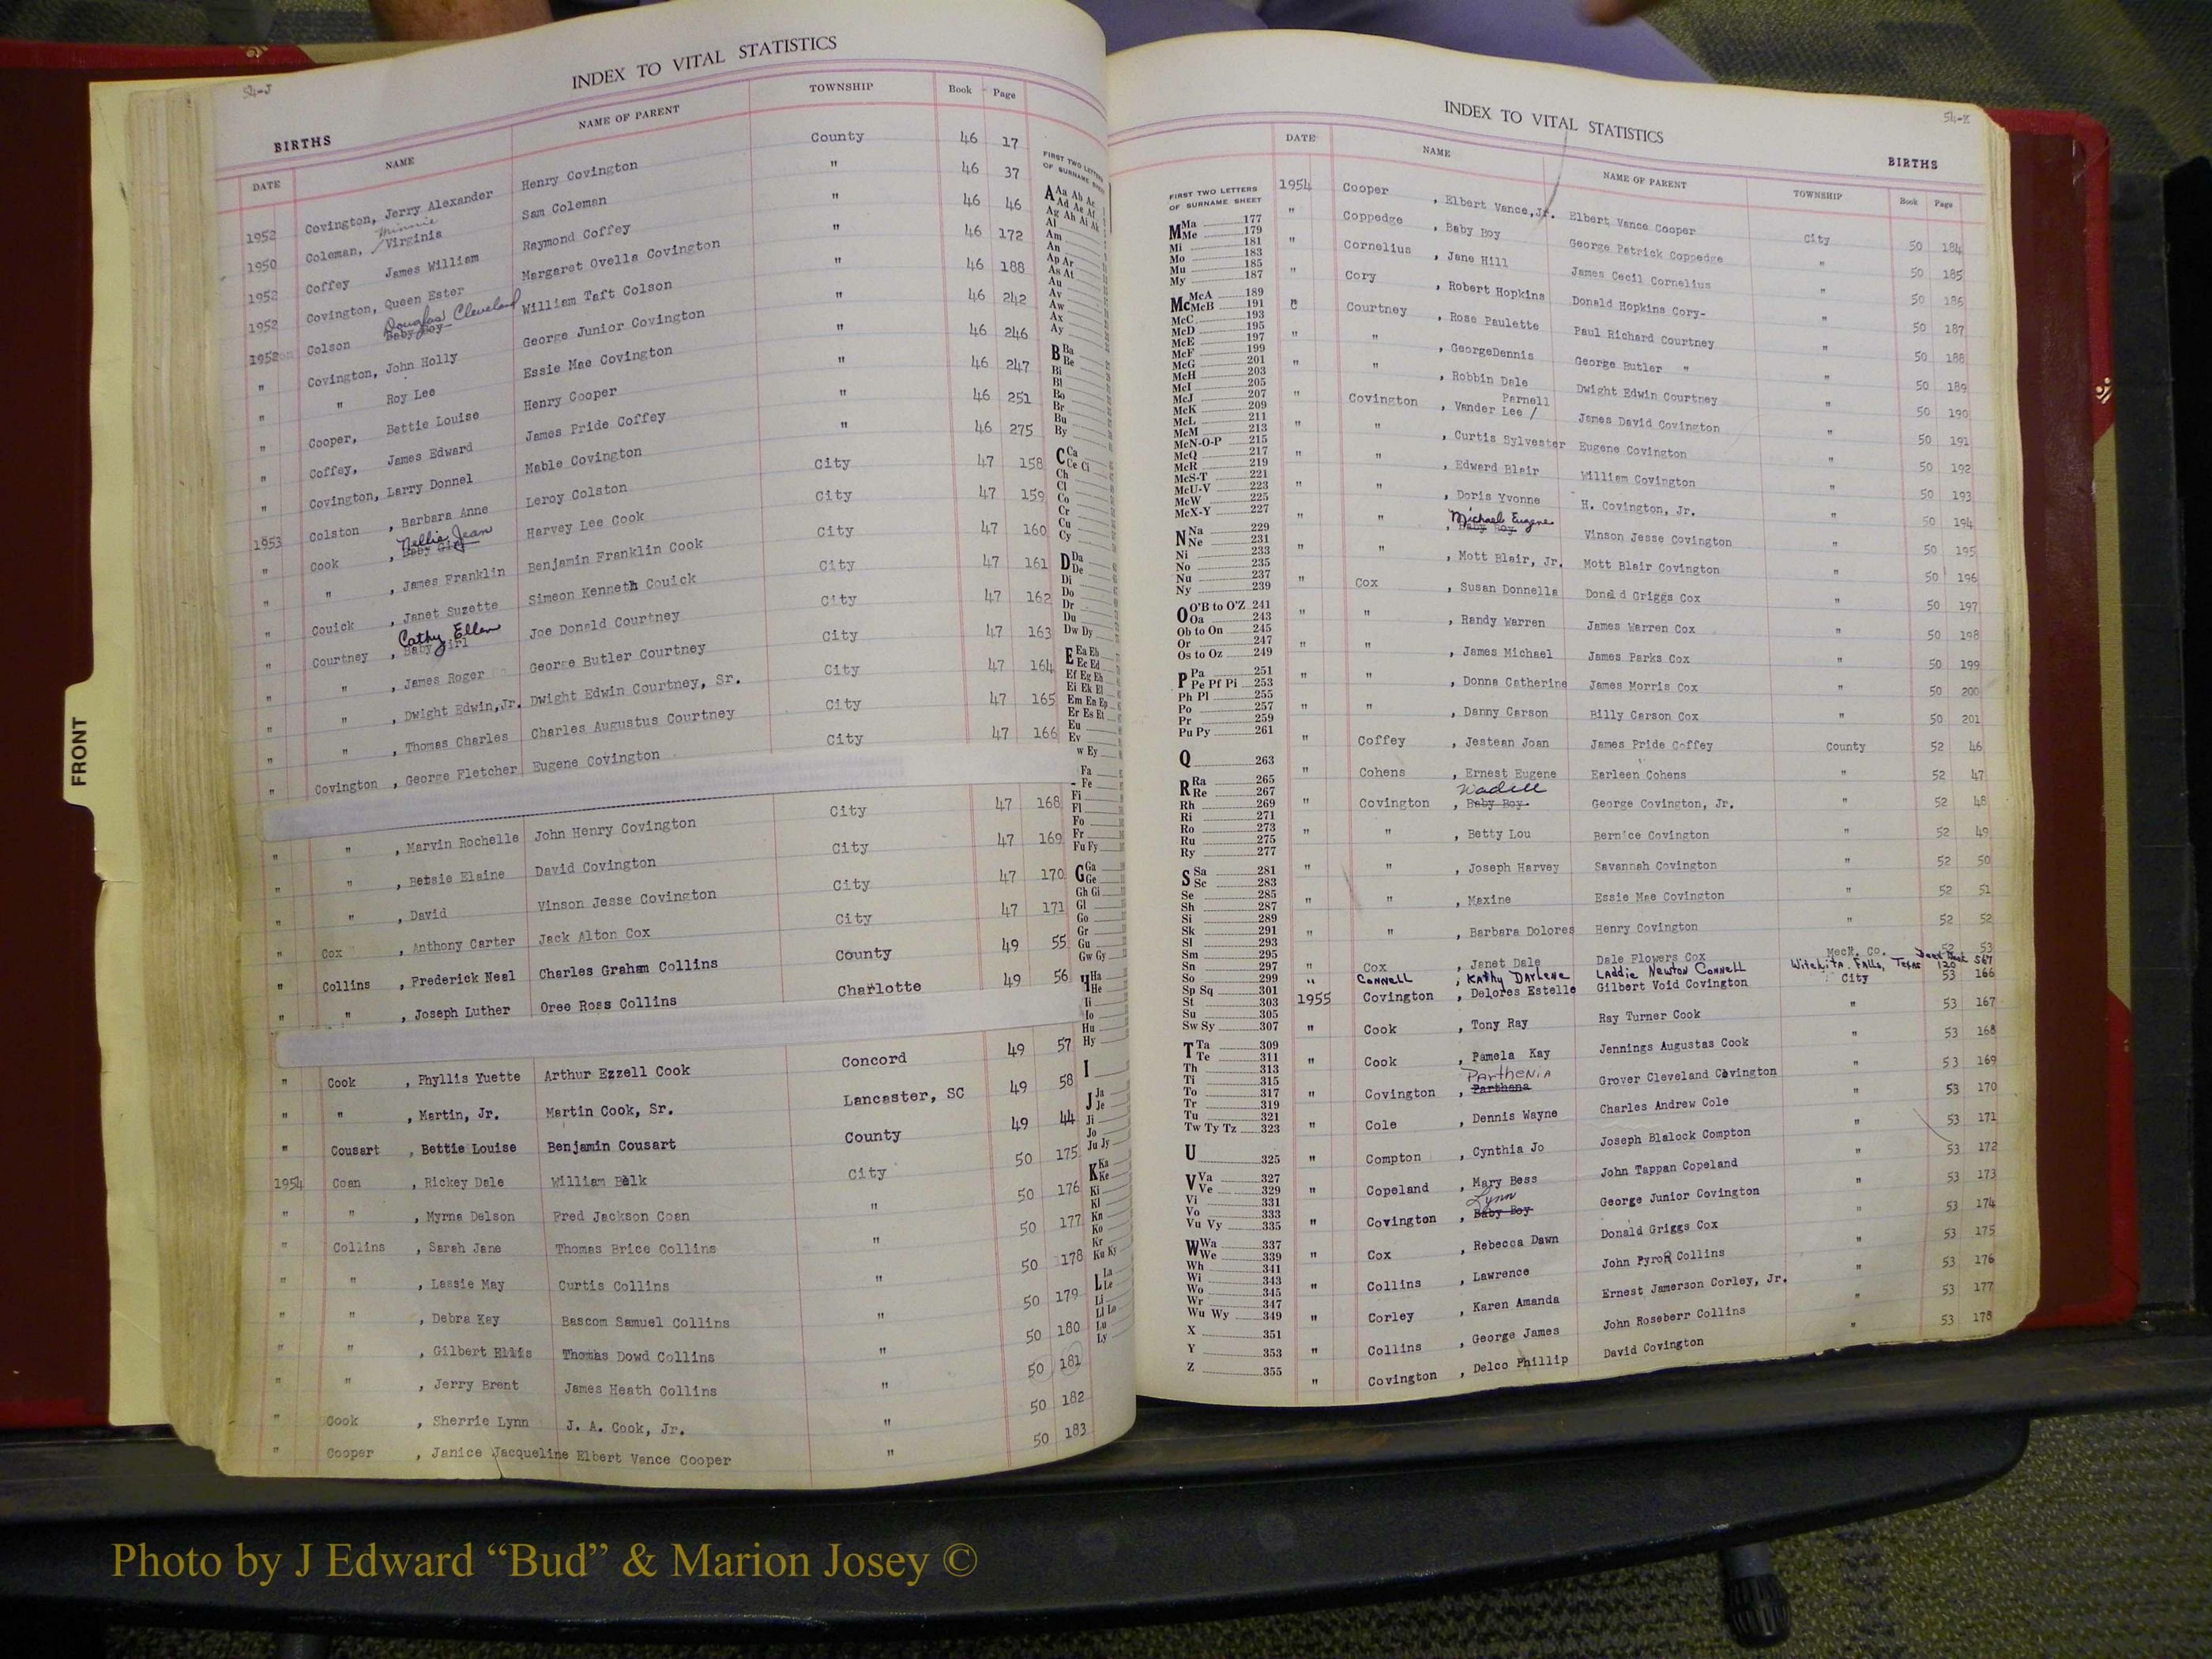 54-J
INDEX TO VITAL STATISTICS
BIRTHS
DATE NAME NAME OF PARENT TOWNSHIP Book Page
1952 Covington, Jerry Alexander Henry Covington County 46 17
1950 Coleman, Minnie Virginia Sam Coleman " 46 37
1952 Coffey James William Raymond Coffey " 46 46
1952 Covington, Queen Ester Margaret Ovella Covington " 46 172
1952 Colson Baby Boy Douglas Cleveland William Taft Colson " 46 188
" Covington, John Holly George Junior Covington " 46 242
" " Roy Lee Essie Mae Covington " 46 246
" Cooper, Bettie Louise Henry Cooper " 46 247
" Coffey, James Edward James Pride Coffey " 46 251
" Covington, Larry Donnel Mable Covington " 46 275
1953 Colston , Barbara Anne Leroy Colston City 47 158
" Cook , Baby Girl Nellie Jean Harvey Lee Cook City 47 159
" " , James Franklin Benjamin Franklin Cook City 47 160
" Couick , Janet Suzette Simeon Kenneth Couick City 47 161
" Courtney , Baby Girl Cathy Ellen Joe Donald Courtney City 47 162
" " , James Roger George Butler Courtney City 47 163
" " , Dwight Edwin,Jr. Dwight Edwin Courtney, Sr. City 47 164
" " , Thomas Charles Charles Augustus Courtney City 47 165
" Covington , George Fletcher Eugene Covington City 47 166
" " , Marvin Rochelle John Henry Covington City 47 168
" " , Betsie Elaine David Covington City 47 169
" " , David Vinson Jesse Covington City 47 170
" Cox , Anthony Carter Jack Alton Cox City 47 171
" Collins , Frederick Neal Charles Graham Collins County 49 55
" " , Joseph Luther Oree Ross Collins Charlotte 49 56
" Cook , Phyllis Yuette Arthur Ezzell Cook Concord 49 57
" " , Martin, Jr. Martin Cook, Sr. Lancaster, SC 49 58
" Cousart , Bettie Louise Benjamin Cousart County 49 44
1954 Coan , Rickey Dale William Belk City 50 175
" " , Myrna Delson Fred Jackson Coan " 50 176
" Collins , Sarah Jane Thomas Brice Collins " 50 177
" " , Lassie May Curtis Collins " 50 178
" " , Debra Kay Bascom Samuel Collins " 50 179
" " , Gilbert Ellis Thomas Dowd Collins " 50 180
" " , Jerry Brent James Heath Collins " 50 181
" Cook , Sherrie Lynn J. A. Cook, Jr. " 50 182
" Cooper , Janice Jacqueline Elbert Vance Cooper " 50 183
FIRST TWO LETTERS
OF SURNAME SHEET
A Aa Ab Ac
Ad Ae Af
Ag Ah Ai Ak
Al
Am
An
Ap Ar
As At
Au
Av
Aw
Ax
Ay
B Ba
Be
Bi
Bl
Bo
Br
Bu
By
C Ca
Ce Ci
Ch
Cl
Co
Cr
Cu
Cy
D Da
De
Di
Do
Dr
Du
Dw Dy
E Ea Eb
Ec Ed
Ef Eg Eh
Ei Ek El
Em En Ep
Er Es Et
Eu
Ev
w Ey
Fa
Fe
Fi
Fl
Fo
Fr
Fu Fy
G Ga
Ge
Gh Gi
Gl
Go
Gr
Gu
Gw Gy
H Ha
He
Hi
Ho
Hu
Hy
I
J Ja
Je
Ji
Jo
Ju Jy
K Ka
Ke
Ki
Kl
Kn
Ko
Kr
Ku Ky
L La
Le
Li
Ll Lo
Lu
Ly
FRONT
INDEX TO VITAL STATISTICS
54-K
BIRTHS
FIRST TWO LETTERS
OF SURNAME SHEET
M Ma 177
Me 179
Mi 181
Mo 183
Mu 185
My 187
Mc McA 189
McB 191
McC 193
McD 195
McE 197
McF 199
McG 201
McH 203
McI 205
McJ 207
McK 209
McL 211
McM 213
McN-O-P 215
McQ 217
McR 219
McS-T 221
McU-V 223
McW 225
McX-Y 227
N Na 229
Ne 231
Ni 233
No 235
Nu 237
Ny 239
O O'B to O'Z 241
Oa 243
Ob to On 245
Or 247
Os to Oz 249
P Pa 251
Pe Pf Pi 253
Ph Pl 255
Po 257
Pr 259
Pu Py 261
Q 263
R Ra 265
Re 267
Rh 269
Ri 271
Ro 273
Ru 275
Ry 277
S Sa 281
Sc 283
Se 285
Sh 287
Si 289
Sk 291
Sl 293
Sm 295
Sn 297
So 299
Sp Sq 301
St 303
Su 305
Sw Sy 307
T Ta 309
Te 311
Th 313
Ti 315
To 317
Tr 319
Tu 321
Tw Ty Tz 323
U 325
V Va 327
Ve 329
Vi 331
Vo 333
Vu Vy 335
W Wa 337
We 339
Wh 341
Wi 343
Wo 345
Wr 347
Wu Wy 349
X 351
Y 353
Z 355
DATE NAME NAME OF PARENT TOWNSHIP Book Page
1954 Cooper , Elbert Vance,Jr. Elbert Vance Cooper City 50 184
" Coppedge , Baby Boy George Patrick Coppedge " 50 185
" Cornelius , Jane Hill James Cecil Cornelius " 50 186
" Cory , Robert Hopkins Donald Hopkins Cory- " 50 187
" Courtney , Rose Paulette Paul Richard Courtney " 50 188
" " , GeorgeDennis George Butler " " 50 189
" " , Robbin Dale Dwight Edwin Courtney " 50 190
" Covington , Vander Lee / Parnell James David Covington " 50 191
" " , Curtis Sylvester Eugene Covington " 50 192
" " , Edward Blair William Covington " 50 193
" " , Doris Yvonne H. Covington, Jr. " 50 194
" " , Baby Boy Michael Eugene Vinson Jesse Covington " 50 195
" " , Mott Blair, Jr. Mott Blair Covington " 50 196
" Cox , Susan Donnella Donald Griggs Cox " 50 197
" " , Randy Warren James Warren Cox " 50 198
" " , James Michael James Parks Cox " 50 199
" " , Donna Catherine James Morris Cox " 50 200
" " , Danny Carson Billy Carson Cox " 50 201
" Coffey , Jestean Joan James Pride Coffey County 52 46
" Cohens , Ernest Eugene Earleen Cohens " 52 47
" Covington , Baby Boy Wadell George Covington, Jr. " 52 48
" " , Betty Lou Bernice Covington " 52 49
" " , Joseph Harvey Savannah Covington " 52 50
" " , Maxine Essie Mae Covington " 52 51
" " , Barbara Dolores Henry Covington " 52 52
" Cox , Janet Dale Dale Flowers Cox Meck. Co. 52 53
" Connell , Kathy Darlene Laddie Newton Connell Witchita Falls, Texas 120 567
1955 Covington , Delores Estelle Gilbert Void Covington City 53 166
" Cook , Tony Ray Ray Turner Cook " 53 167
" Cook , Pamela Kay Jennings Augustas Cook " 53 168
" Covington , Parthena Parthenia Grover Cleveland Covington " 53 169
" Cole , Dennis Wayne Charles Andrew Cole " 53 170
" Compton , Cynthia Jo Joseph Blalock Compton " 53 171
" Copeland , Mary Bess John Tappan Copeland " 53 172
" Covington , Baby Boy Lynn George Junior Covington " 53 173
" Cox , Rebecca Dawn Donald Griggs Cox " 53 174
" Collins , Lawrence John Pyron Collins " 53 175
" Corley , Karen Amanda Ernest Jamerson Corley, Jr. " 53 176
" Collins , George James John Roseberr Collins " 53 177
" Covington , Delco Phillip David Covington " 53 178
Photo by J Edward “Bud” & Marion Josey ©